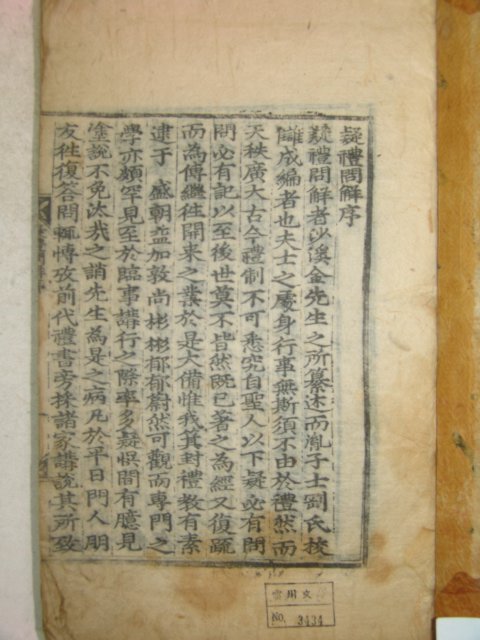 疑禮問解序
疑禮問解者沙溪金先生之所纂述而胤子士剛氏挍
讎成編者也夫士之處身行事無斯須不由於禮然而
天秩廣大古今禮制不可悉究自聖人以下疑必有問
問必有記以至後世莫不皆然旣已著之爲經又復疏
而為傳繼徃開來之業於是大備惟我箕封禮教有素
逮于 盛朝益加敦尚彬彬郁郁蔚然可觀而專門之
學亦頗罕見至於臨事講行之際率多疑悞間有臆見
塗說不免汰哉之誚先生為是之病凡於平日門人朋
友徃復答問輒博攷前代禮書旁採諸家講說其所致
No. 3434